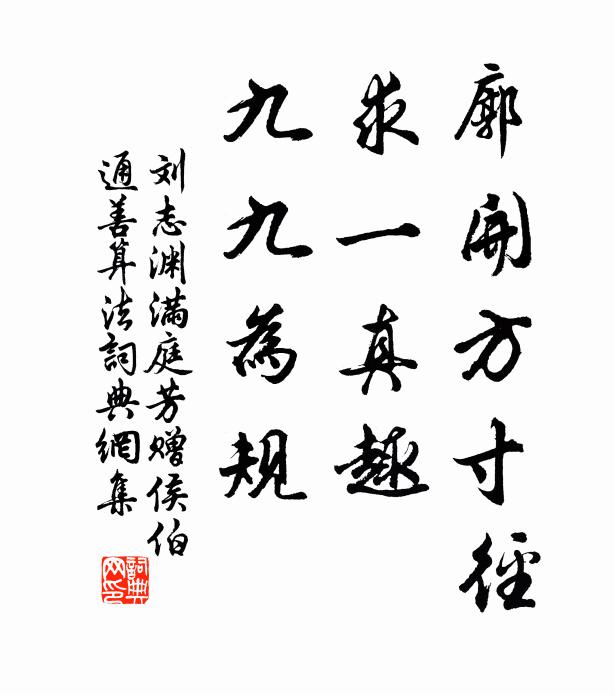 廓開方寸徑
求一真趣
九九為規
刘志渊满庭芳赠侯伯
通善算法詞典網集
詞典
网印